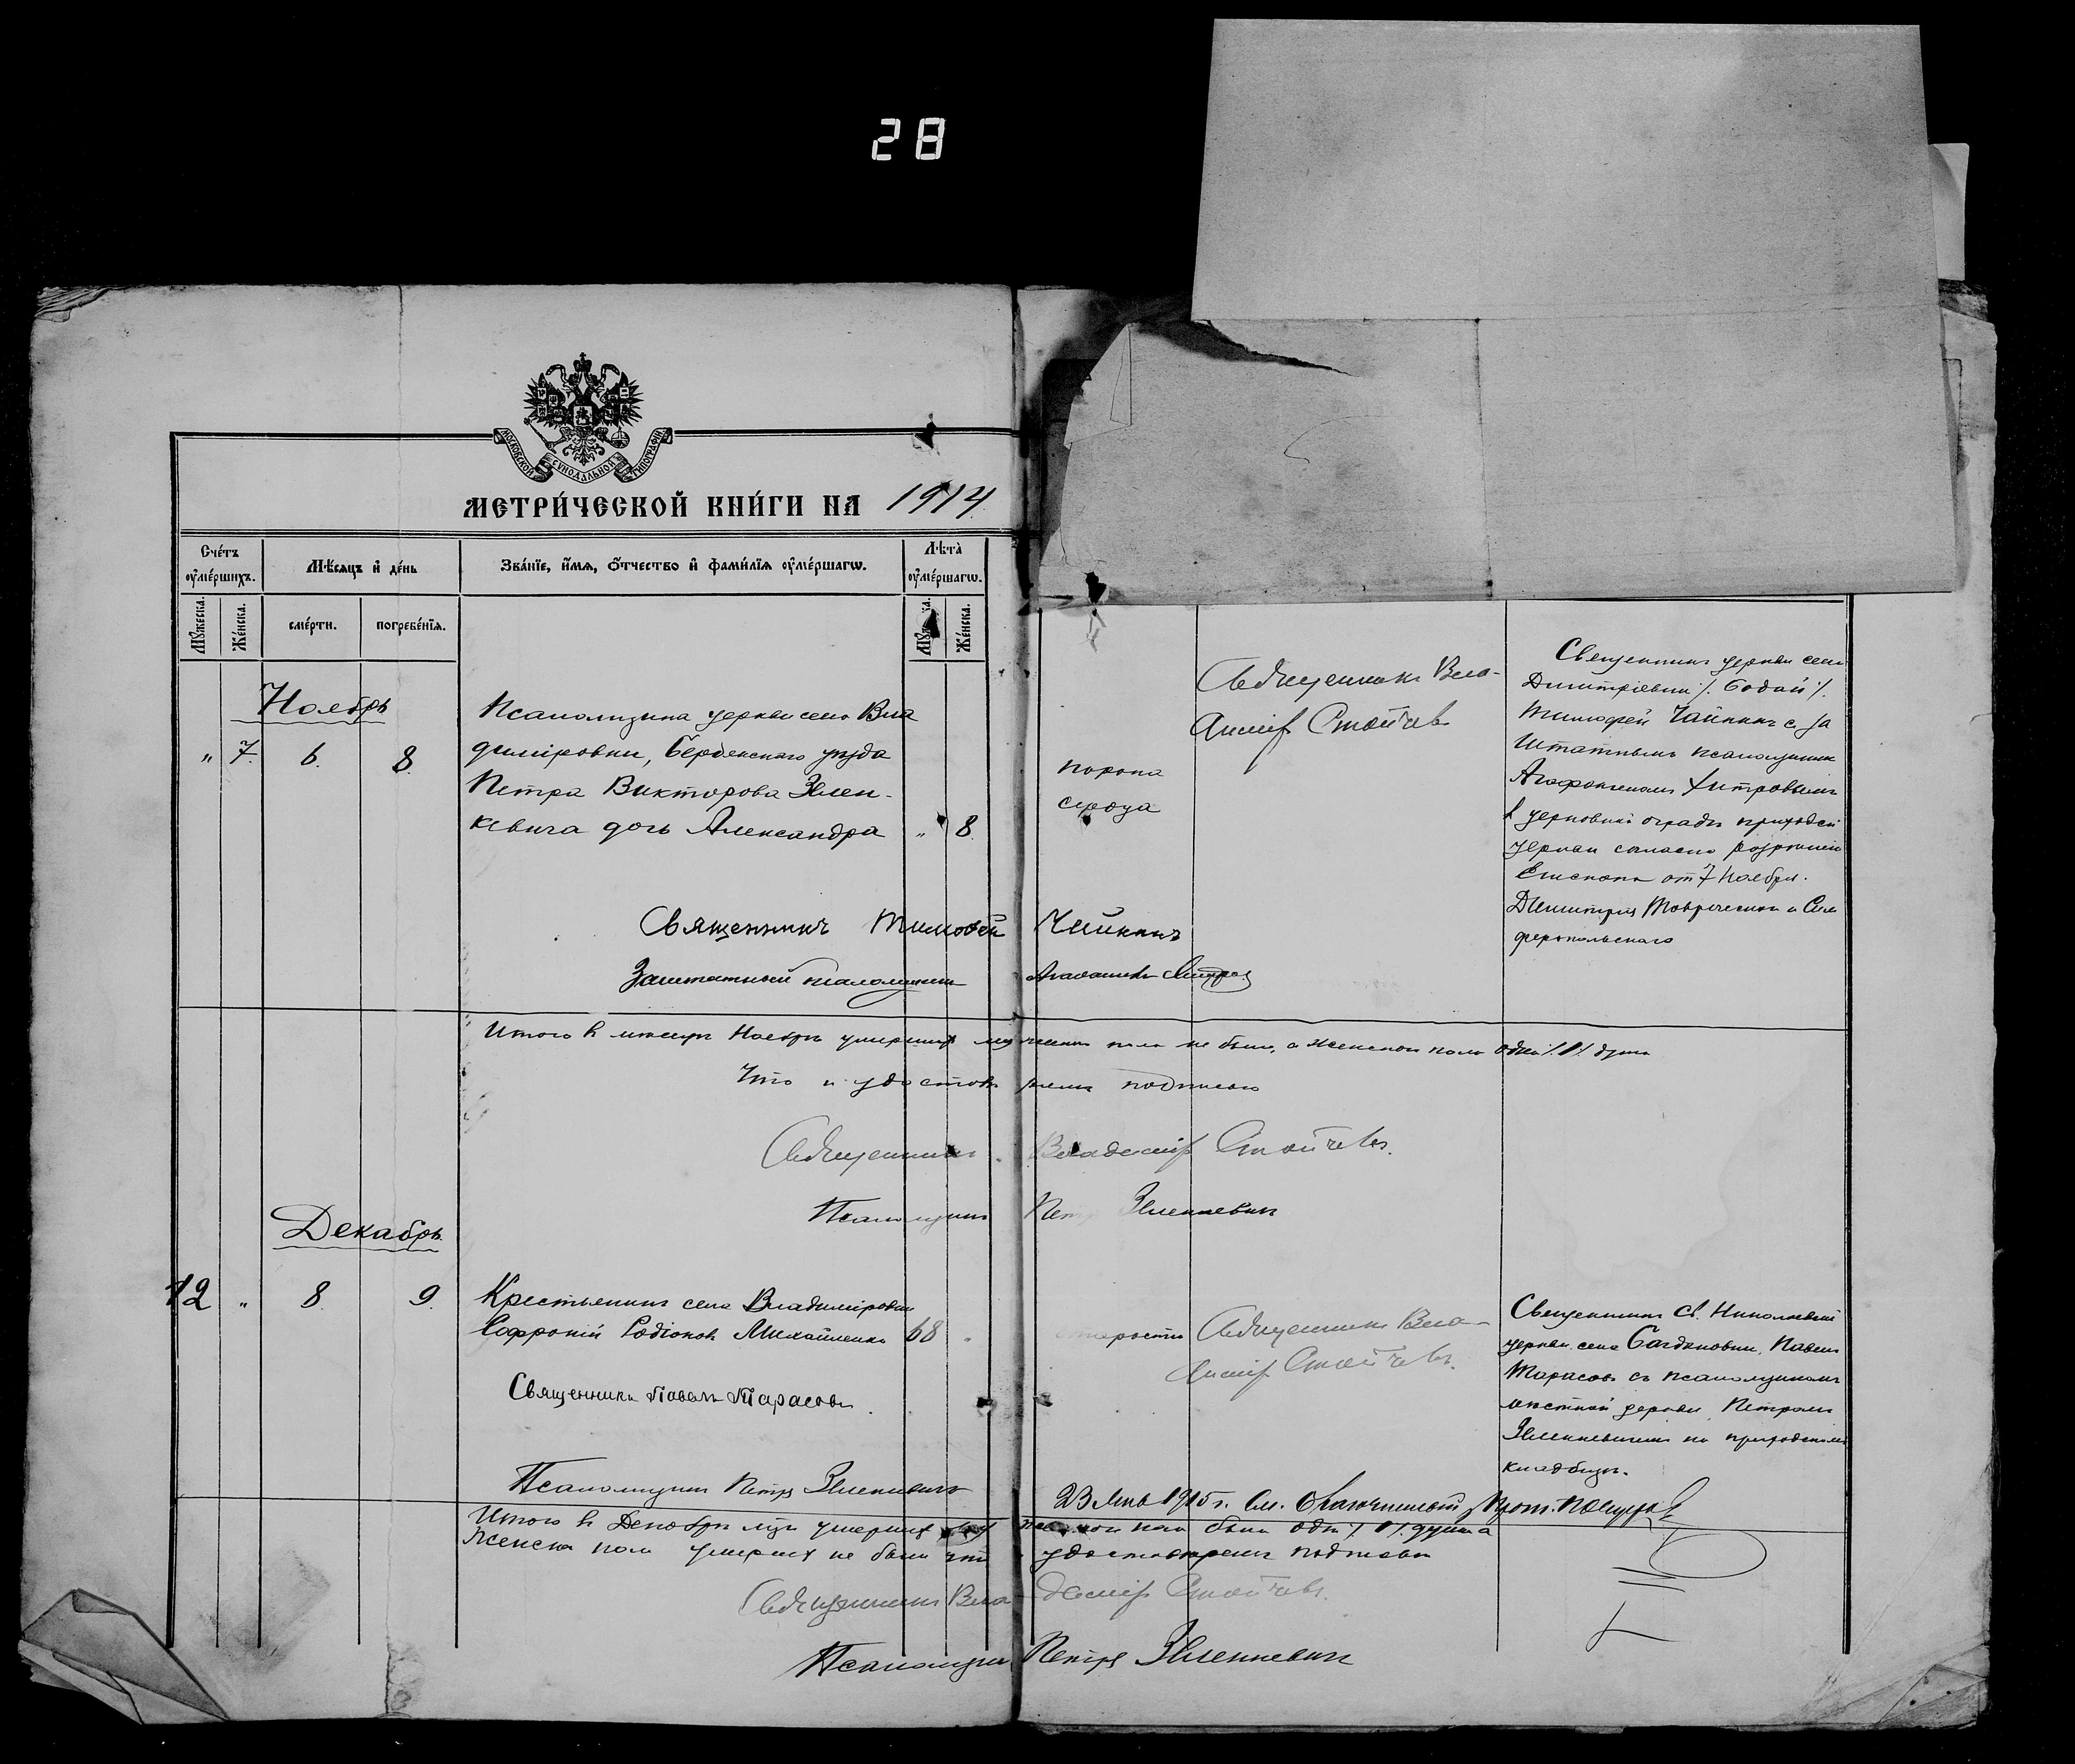 28
МОСКОВСКОЙ СѴНОДАЛЬНОЙ ТИПОГРАФІИ
МЕТРИ́ЧЕСКОЙ КНИ́ГИ НА 1914
Сче́тъ ᲂу҆ме́ршихъ.
Мѣ́сяцъ и҆ де́нь
Зва́нїе, и҆́мѧ, ѻ҆́тчество и҆ фами́лїѧ ᲂу҆ме́ршагѡ.
Лѣта̀ ᲂу҆ме́ршагѡ.
Мꙋ́жеска.
Же́нска.
сме́рти.
погребе́нїѧ.
Мꙋ́
Же́нска.
Ноябрь
" 7. 6. 8.
Псаломщика церкви села Вла
диміровки, Бердянскаго уѣзда
Петра Викторова Зелен-
кевича дочь Александра " 8.
порока
сердца
Священникъ Вла-
диміръ Стойчевъ
Священникъ церкви села
Димитріевки /. Бодай /.
Тимофей Чайкинъ с за
штатнымъ псаломщикомъ
Хитровымъ
в церковной оградѣ приходской
церкви согласно
Епископа от 7 Ноября.
Димитрія Таврическаго и Сим
феропольскаго
Священникъ Тимофей Чайкинъ
Заштатный псаломщикъ
Итого в мѣсяцѣ Ноябрѣ умершихъ мужеска пола не было, а женскаго пола одна /.1/. душа
Что и удостовѣряемъ подписью
Священникъ Владиміръ Стойчевъ.
Псаломщикъ Петръ Зеленкевичъ
Декабрь.
12 " 8. 9.
Крестьянинъ села Владиміровки
Софроній Родіоновъ Михайленко 68 "
старости
Священникъ Вла-
диміръ Стойчевъ.
Священникъ Св. Николаевской
церкви села Богдановки, Павелъ
Тарасовъ съ псаломщикомъ
мѣстной церкви Петромъ
Зеленкевичемъ на приходскомъ
кладбищѣ.
Священникъ Павелъ Тарасовъ.
Псаломщикъ Петръ Зеленкевичъ
23 Янв 1915 г. См. Благочинный Прот.
Итого в Декабрѣ м-цѣ умершихъ мужескаго пола былъ одн /.1/. душа
Женска пола умершихъ не было что удостовѣряемъ подписью
Священникъ Владиміръ Стойчевъ.
Псаломщикъ Петръ Зеленкевичъ